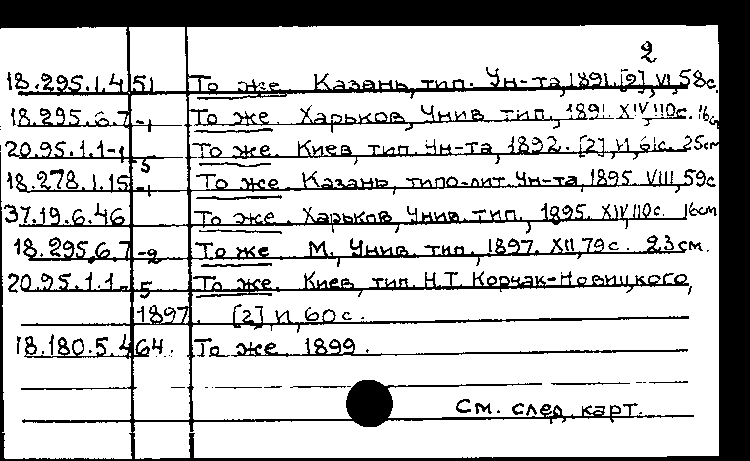 2
18.295.1.4 51 То же Казань, тип. Ун-та, 1891. [2], VI, 58 с.
18.295.6.7-1 То же. Харьков, Унив. тип., 1891. XIV, 110 с. 16 см
20.95.1.1-1 5 То же. Киев, тип. Ун-та, 1892. [2], И, 61 с. 25 см
18.278.1.15-1 То же. Казань, типо-лит. Ун-та, 1895. VIII, 59 с
37.19.6.46 То же. Харьков, Унив. тип., 1895. XIV, 110 с. 16 см
18.295.6.7-2 То же М., Унив. тип., 1897. XII, 79 с. 23 см.
20.95.1.1-5 То же. Киев, тип. Н.Т. Корчак-Новицкого,
1897. [2], И, 60 с.
18.180.5.4 64. То же 1899.
См. след. карт.